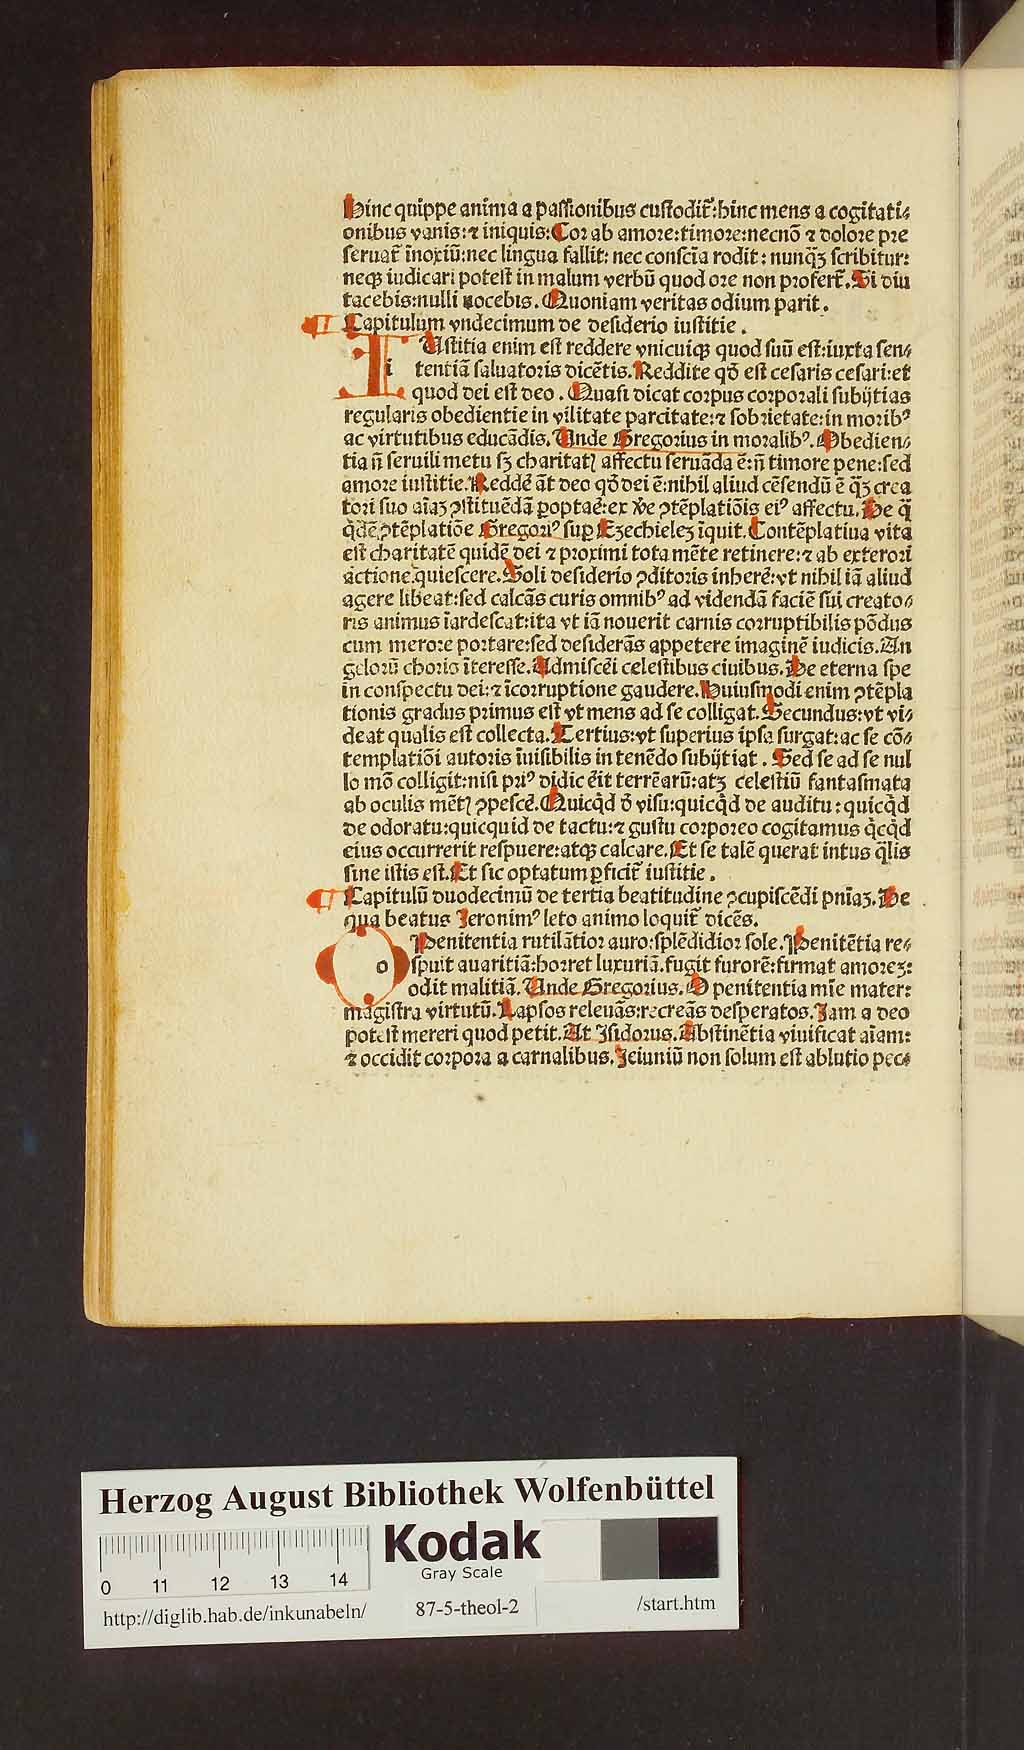 Hinc quippe anima a passionibus custodit̃: hinc mens a cogitati⸗
onibus vanis: ⁊ iniquis: Cor ab amore: timore: necnō ⁊ dolore pre
seruat̃ īnoxiū: nec lingua fallit: nec consciā rodit: nunq̄ʒ scribitur:
neqʒ iudicari potest in malum verbū quod ore non profert̃. Si diu
tacebis: nulli nocebis. Quoniam veritas odium parit.
Capitulum vndecimum de desiderio iustitie.
i Ustitia enim est reddere vnicuiqʒ quod suū est: iuxta sen⸗
tentiā saluatoris dicētis. Reddite qḋ est cesaris cesari: et
quod dei est deo. Quasi dicat corpus corporali subijtias
regularis obedientie in vilitate parcitate: ⁊ sobrietate: in moribꝰ
ac virtutibus educādis. Unde Gregorius in moralibꝰ. Obedien⸗
tia n̄ seruili metu sʒ charitatꝭ affectu seruāda ē: n̄ timore pene: sed
amore iustitie. Redde᷑ āt deo qḋ dei ē: nihil aliud cēsendū ē q̄ʒ crea
tori suo aīaʒ ꝯstituēdā ꝑoptae᷑: ex v̄e ꝯtēplatiōis eiꝰ affectu. De q̄
q̇dē ꝯtēplatiōe Gregoriꝰ suꝑ Ezechieleʒ īquit. Contēplatiua vita
est charitatē quidē dei ⁊ proximi tota mēte retinere: ⁊ ab exterori
actione quiescere. Soli desiderio ꝯditoris inhere᷑: vt nihil iā aliud
agere libeat: sed calcās curis omnibꝰ ad videndā faciē sui creato⸗
ris animus īardescat: ita vt iā nouerit carnis corruptibilis pōdus
cum merore portare: sed desiderās appetere imaginē iudicis. An
gelorū choris īteresse. Admiscēi celestibus ciuibus. De eterna spe
in conspectu dei: ⁊ īcorruptione gaudere. Huiusmodi enim ꝯtēpla
tionis gradus primus est vt mens ad se colligat. Secundus: vt vi⸗
deat qualis est collecta. Tertius: vt superius ipsa surgat: ac se cō⸗
templatiōi autoris īuisibilis in tenēdo subijtiat. Sed se ad se nul
lo mō colligit: nisi priꝰ didic ēit terrēarū: atʒ celestiū fantasmata
ab oculis mētꝭ ꝯpescē. Quicq̇d ō visu: quicq̇d de auditu: quicq̇d
de odoratu: quicquid de tactu: ⁊ gustu corporeo cogitamus q̇cq̇d
eius occurrerit respuere: atqʒ calcare. Et se talē querat intus q̄lis
sine istis est. Et sic optatum ꝑficit̃ iustitie.
Capitulū duodecimū de tertia beatitudine ꝯcupiscēdi pn̄iaʒ. De
qua beatus Jeronimꝰ leto animo loquit̃ dicēs.
o Penitentia rutilātior auro: splēdidior sole. Penitētia re⸗
spuit auaritiā: horret luxuriā. fugit furorē: firmat amoreʒ:
odit malitiā. Unde Gregorius. O penitentia mīe mater:
magistra virtutū. Lapsos releuās: recreās desperatos. Jam a deo
potest mereri quod petit. At Jsidorus. Abstinētia viuificat aīam:
⁊ occidit corpora a carnalibus. Jeiuniū non solum est ablutio pec⸗
Herzog August Bibliothek Wolfenbüttel
Kodak
Gray Scale
0 11 12 13 14
http://diglib.hab.de/inkunabeln/ 87-5-theol-2 /start.htm